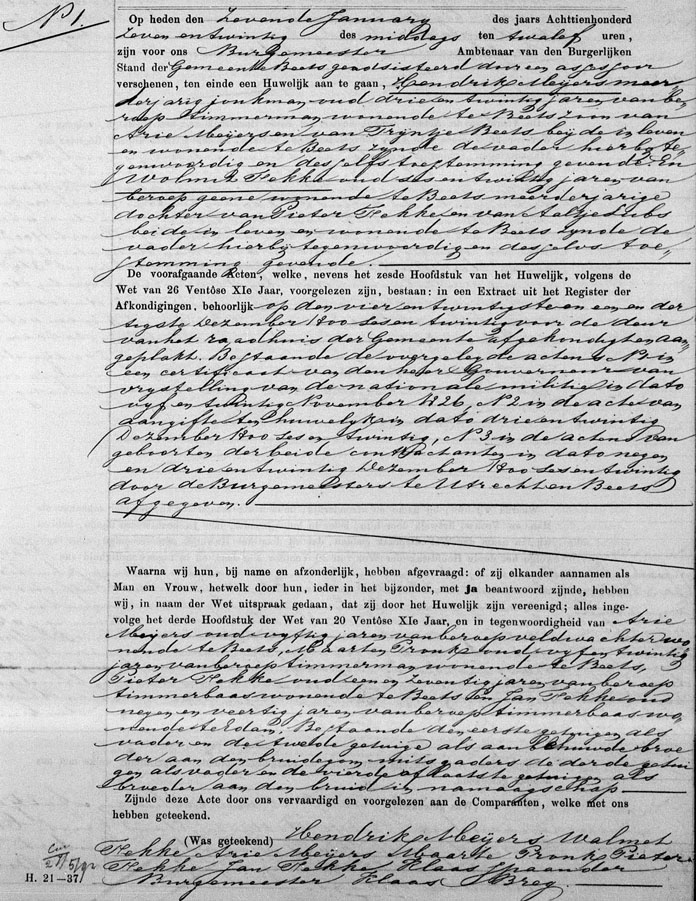 N° 1.
Op heden den Zevende January des jaars Achttienhonderd
Zeven en twintig des middags ten twalef uren,
zijn voor ons Burgemeester Ambtenaar van den Burgerlijken
Stand der Gemeente Beets geadsisteerd door een assessor
verschenen, ten einde een Huwelijk aan te gaan, Hendrik Meijers meer
derjarig jonkman oud drie en twintig jaren van be„
roep timmerman wonende te Beets zoon van
Arie Meijers en van Trijntje Beets beijde in leven
en wonende te Beets zynde de vader hierby te„
genwoordig en deszelfs toestemming gevende. En
Wolmet Fekke oud ses en twintig jaren van
beroep geene wonende te Beets meerderjarige
dochter van Pieter Fekke en van Aaltje Subs
beide in leven en wonende te Beets zynde de
vader hierby tegenwoordig en deszelvs toe„
stemming gevende.
De voorafgaande Acten, welke, nevens het zesde Hoofdstuk van het Huwelijk, volgens de
Wet van 26 Ventôse XIe Jaar, voorgelezen zijn, bestaan: in een Extract uit het Register der
Afkondigingen, behoorlijk op den vier en twintigste en een en der
tigste Dezember 1800 ses en twintig voor de deur
van het raadhuis der Gemeente afgekondigt en aan
geplakt. Bestaande de overgelegde acten N 1 in
een certificaat van den heer Gouverneur van
vrystelling van de nationale militie in dato
vyf en twintig November 1826, N 2 in de acte van
aangifte ten huwelyk in dato drie en twintig
Dezember 1800 ses en twintig, N 3 in de acten van
geboorten der beide contractanten in dato negen
en drie en twintig Dezember 1800 ses en twintig
door de Burgemeesters te Utrecht en Beets
afgegeven.
Waarna wij hun, bij name en afzonderlijk, hebben afgevraagd: of zij elkander aannamen als
Man en Vrouw, hetwelk door hun, ieder in het bijzonder, met ja beantwoord zijnde, hebben
wij, in naam der Wet uitspraak gedaan, dat zij door het Huwelijk zijn vereenigd; alles inge-
volge het derde Hoofdstuk der Wet van 20 Ventôse XIe Jaar, en in tegenwoordigheid van Arie
Meijers oud vyftig jaren van beroep veldwachter wo„
nende te Beets, Maarten Pronk oud vyf en twintig
jaren van beroep timmerman wonende te Beets,
Pieter Fekke oud een en zeventig jaren van beroep
timmerbaas wonende te Beets en Jan Fekke oud
negen en veertig jaren van beroep timmerbaas wo„
nende te Edam. Bestaande den eerste getuigen als
vader en de tweede getuige als aan behuwde broe
der aan den bruidegom mitsgaders de derde getui
gen als vader en de vierde of laatste getuigen als
broeder aan den bruid in namaagschap
Zijnde deze Acte door ons vervaardigd en voorgelezen aan de Comparanten, welke met ons
hebben geteekend.
(Was geteekend) Hendrik Meijers Walmet
Fekke Arie Meijers Maarte Pronk Pieter
Fekke Jan Fekke Klaas Spaander
Burgemeester Klaas Breg.
H. 21—37